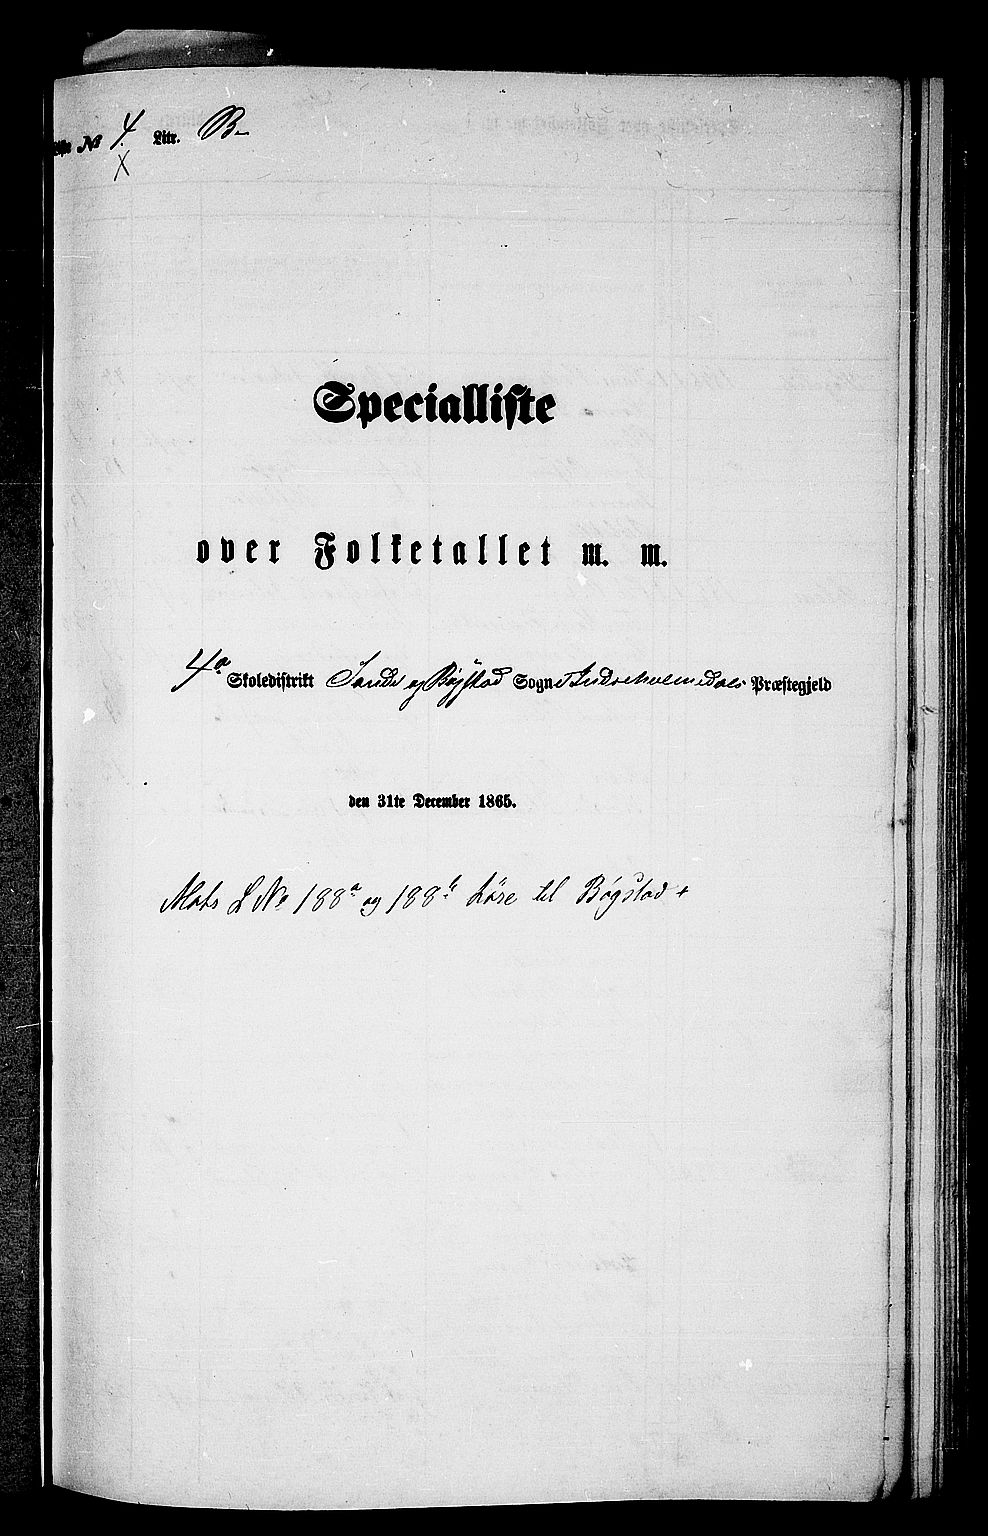 № 4. Litr. B-
X
Specialliste
over Folketallet m. m.
4a Skoledistrikt Sande og Bøgstad Sogn Indreholmedals Præstegjeld
den 31te December 1865.
Matr L № 188a og 188b høre til Bøgstad